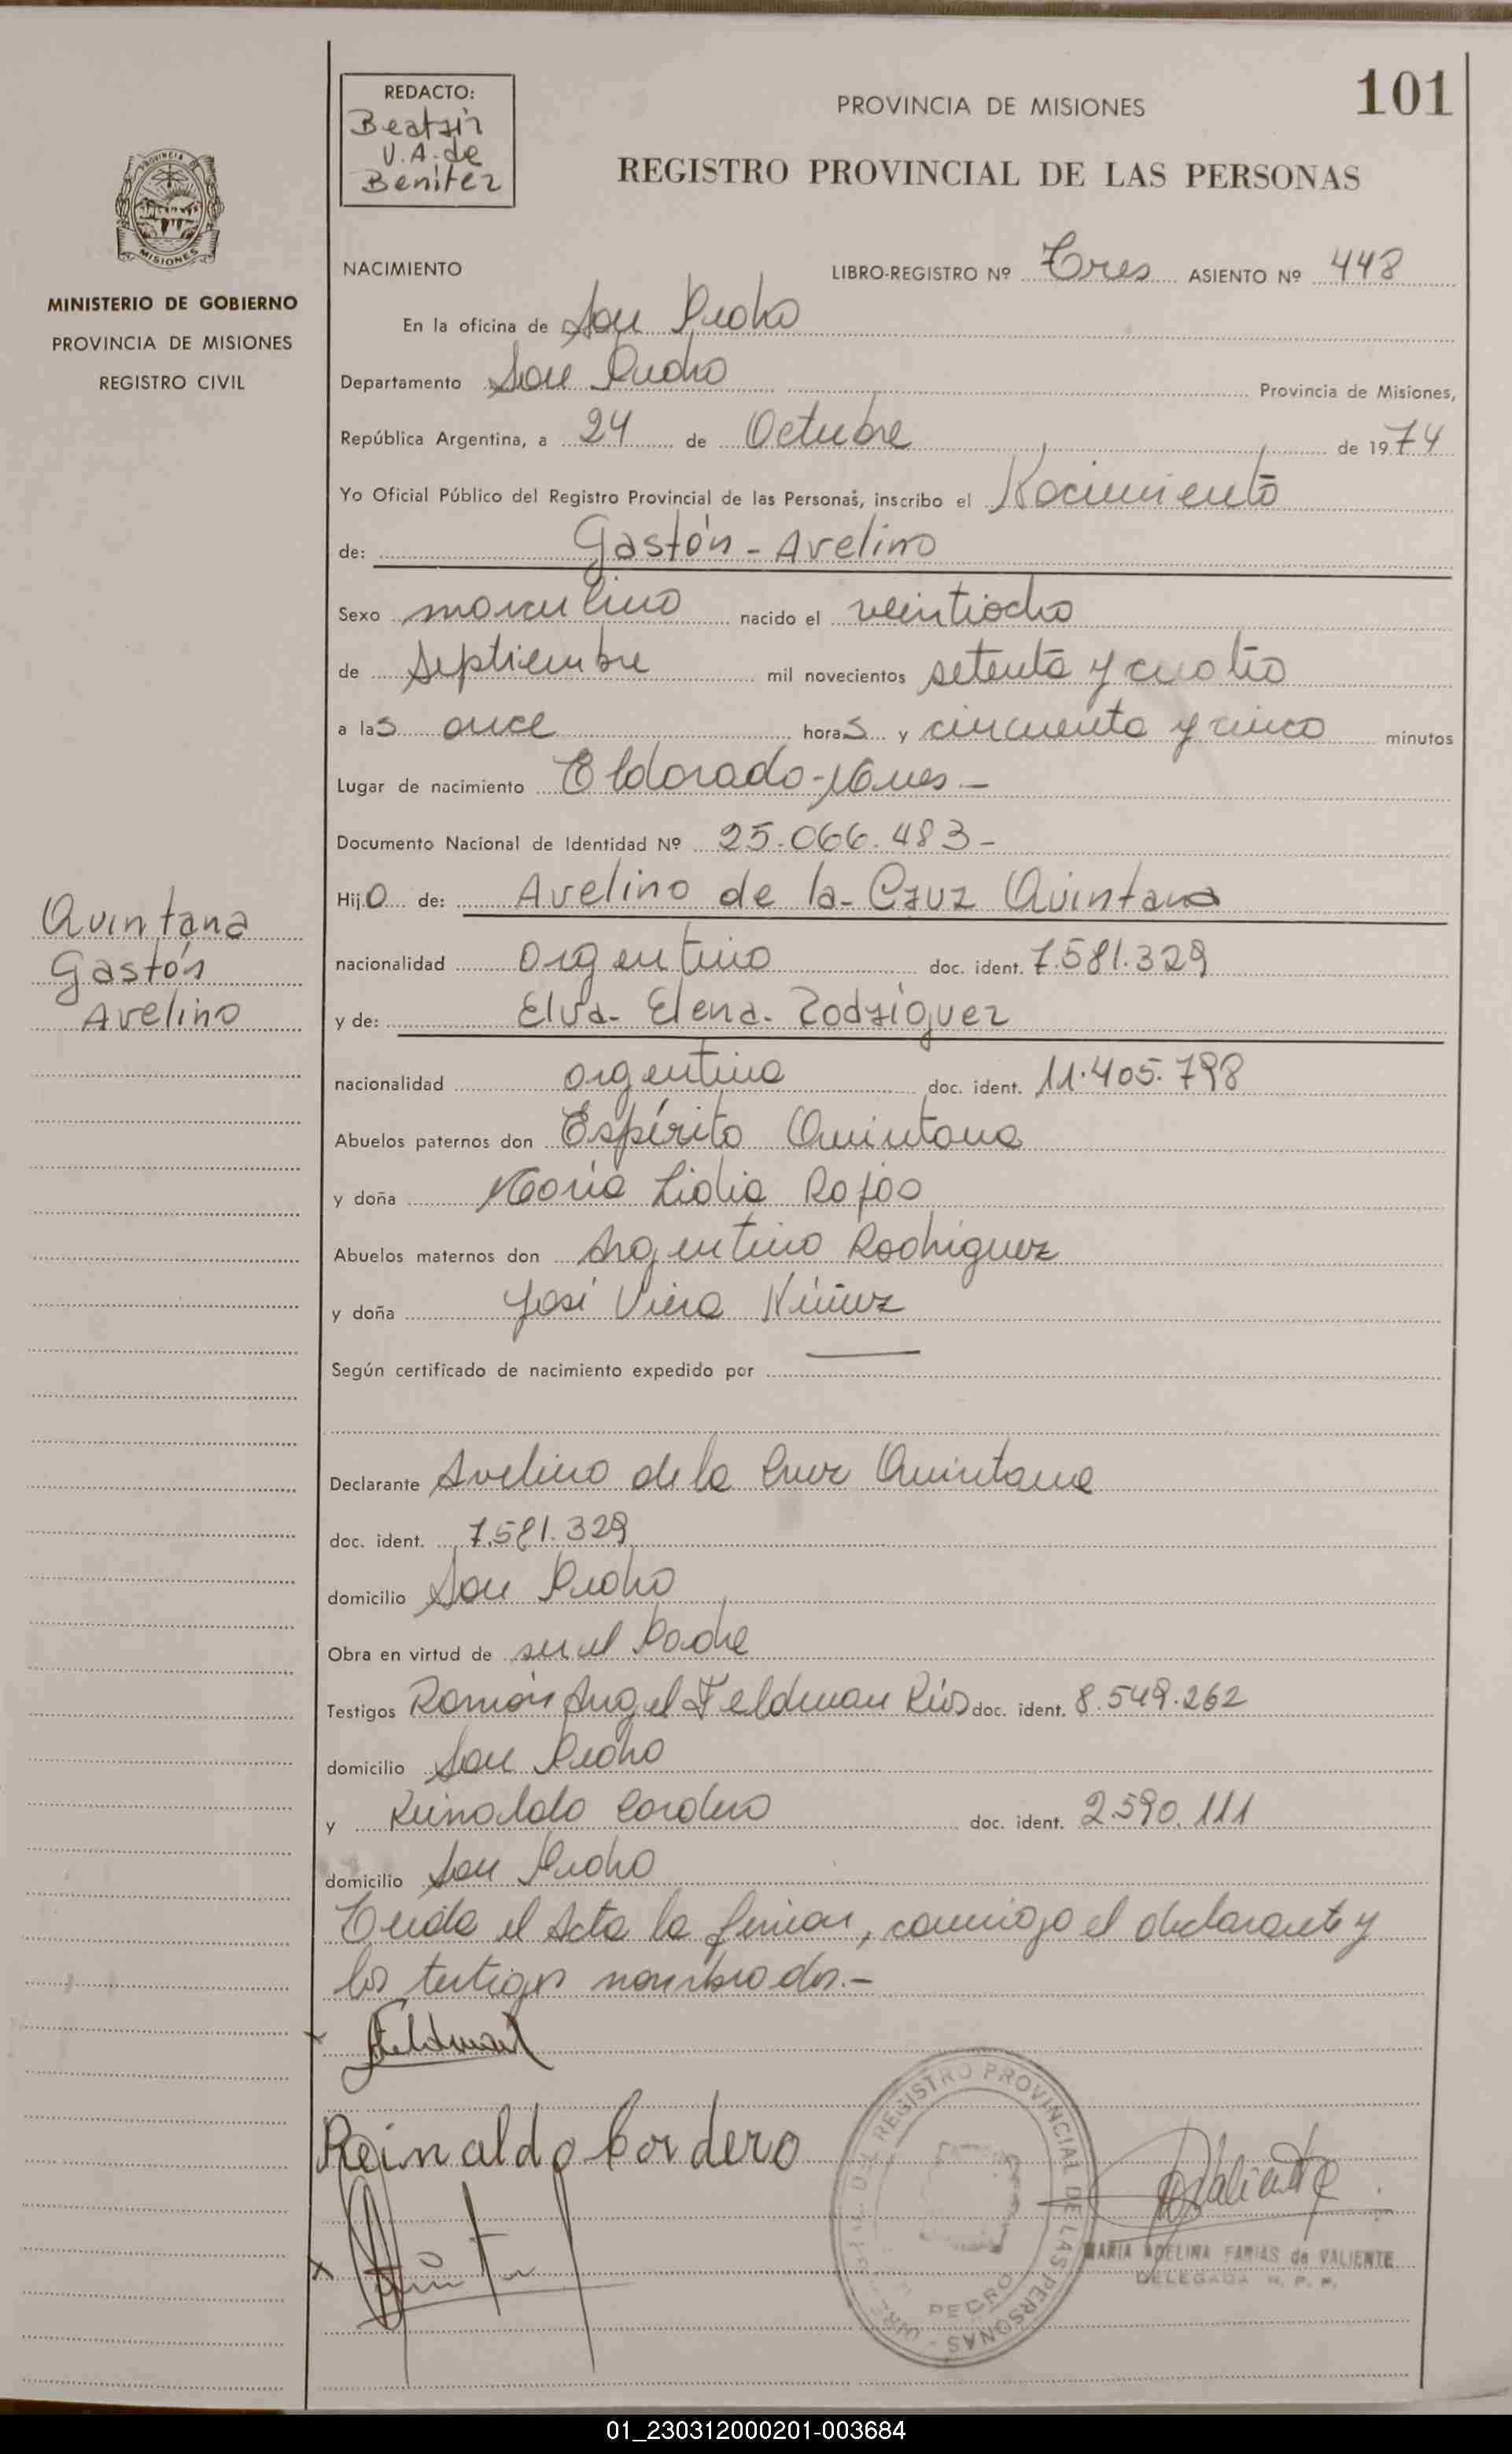 101
REDACTO:
Beatriz
V.A. de
Benitez
PROVINCIA DE MISIONES
REGISTRO PROVINCIAL DE LAS PERSONAS
PROVINCIA
MISIONES
MINISTERIO DE GOBIERNO
PROVINCIA DE MISIONES
REGISTRO CIVIL
NACIMIENTO LIBRO-REGISTRO Nº Tres ASIENTO Nº 448
En la oficina de San Pedro
Departamento San Pedro Provincia de Misiones,
República Argentina, a 24 de Octubre de 1974
Yo Oficial Público del Registro Provincial de las Personas, inscribo el Nacimiento
de: Gastón - Avelino
Sexo masculino nacido el veintiocho
de Septiembre mil novecientos setenta y cuatro
a las once horas y cincuenta y cinco minutos
Lugar de nacimiento Eldorado - Mnes -
Documento Nacional de Identidad Nº 25.066.483-
Hijo de: Avelino de la Cruz Quintana
Quintana
Gastón
Avelino
nacionalidad argentino doc. ident. 7.581.329
y de: Elva Elena Rodríguez
nacionalidad argentina doc. ident. 11.405.798
Abuelos paternos don Espírito Quintana
y doña María Lidia Rojas
Abuelos maternos don Argentino Rodríguez
y doña José Viera Núñez
Según certificado de nacimiento expedido por
Declarante Avelino de la Cruz Quintana
doc. ident. 7.581.329
domicilio San Pedro
Obra en virtud de ser el Padre
Testigos Ramón Angel Feldman Ríos doc. ident. 8.549.262
domicilio San Pedro
y Reinaldo Cordero doc. ident. 2.590.111
domicilio San Pedro
Leída el Acta la firman, conmigo el declarante y
los testigos nombrados.-
Feldman
Reinaldo Cordero
REGISTRO PROVINCIAL DE LAS PERSONAS
PEDRO
Valiente
MARIA ADELINA FARIAS de VALIENTE
DELEGADA R. P. P.
01_230312000201-003684